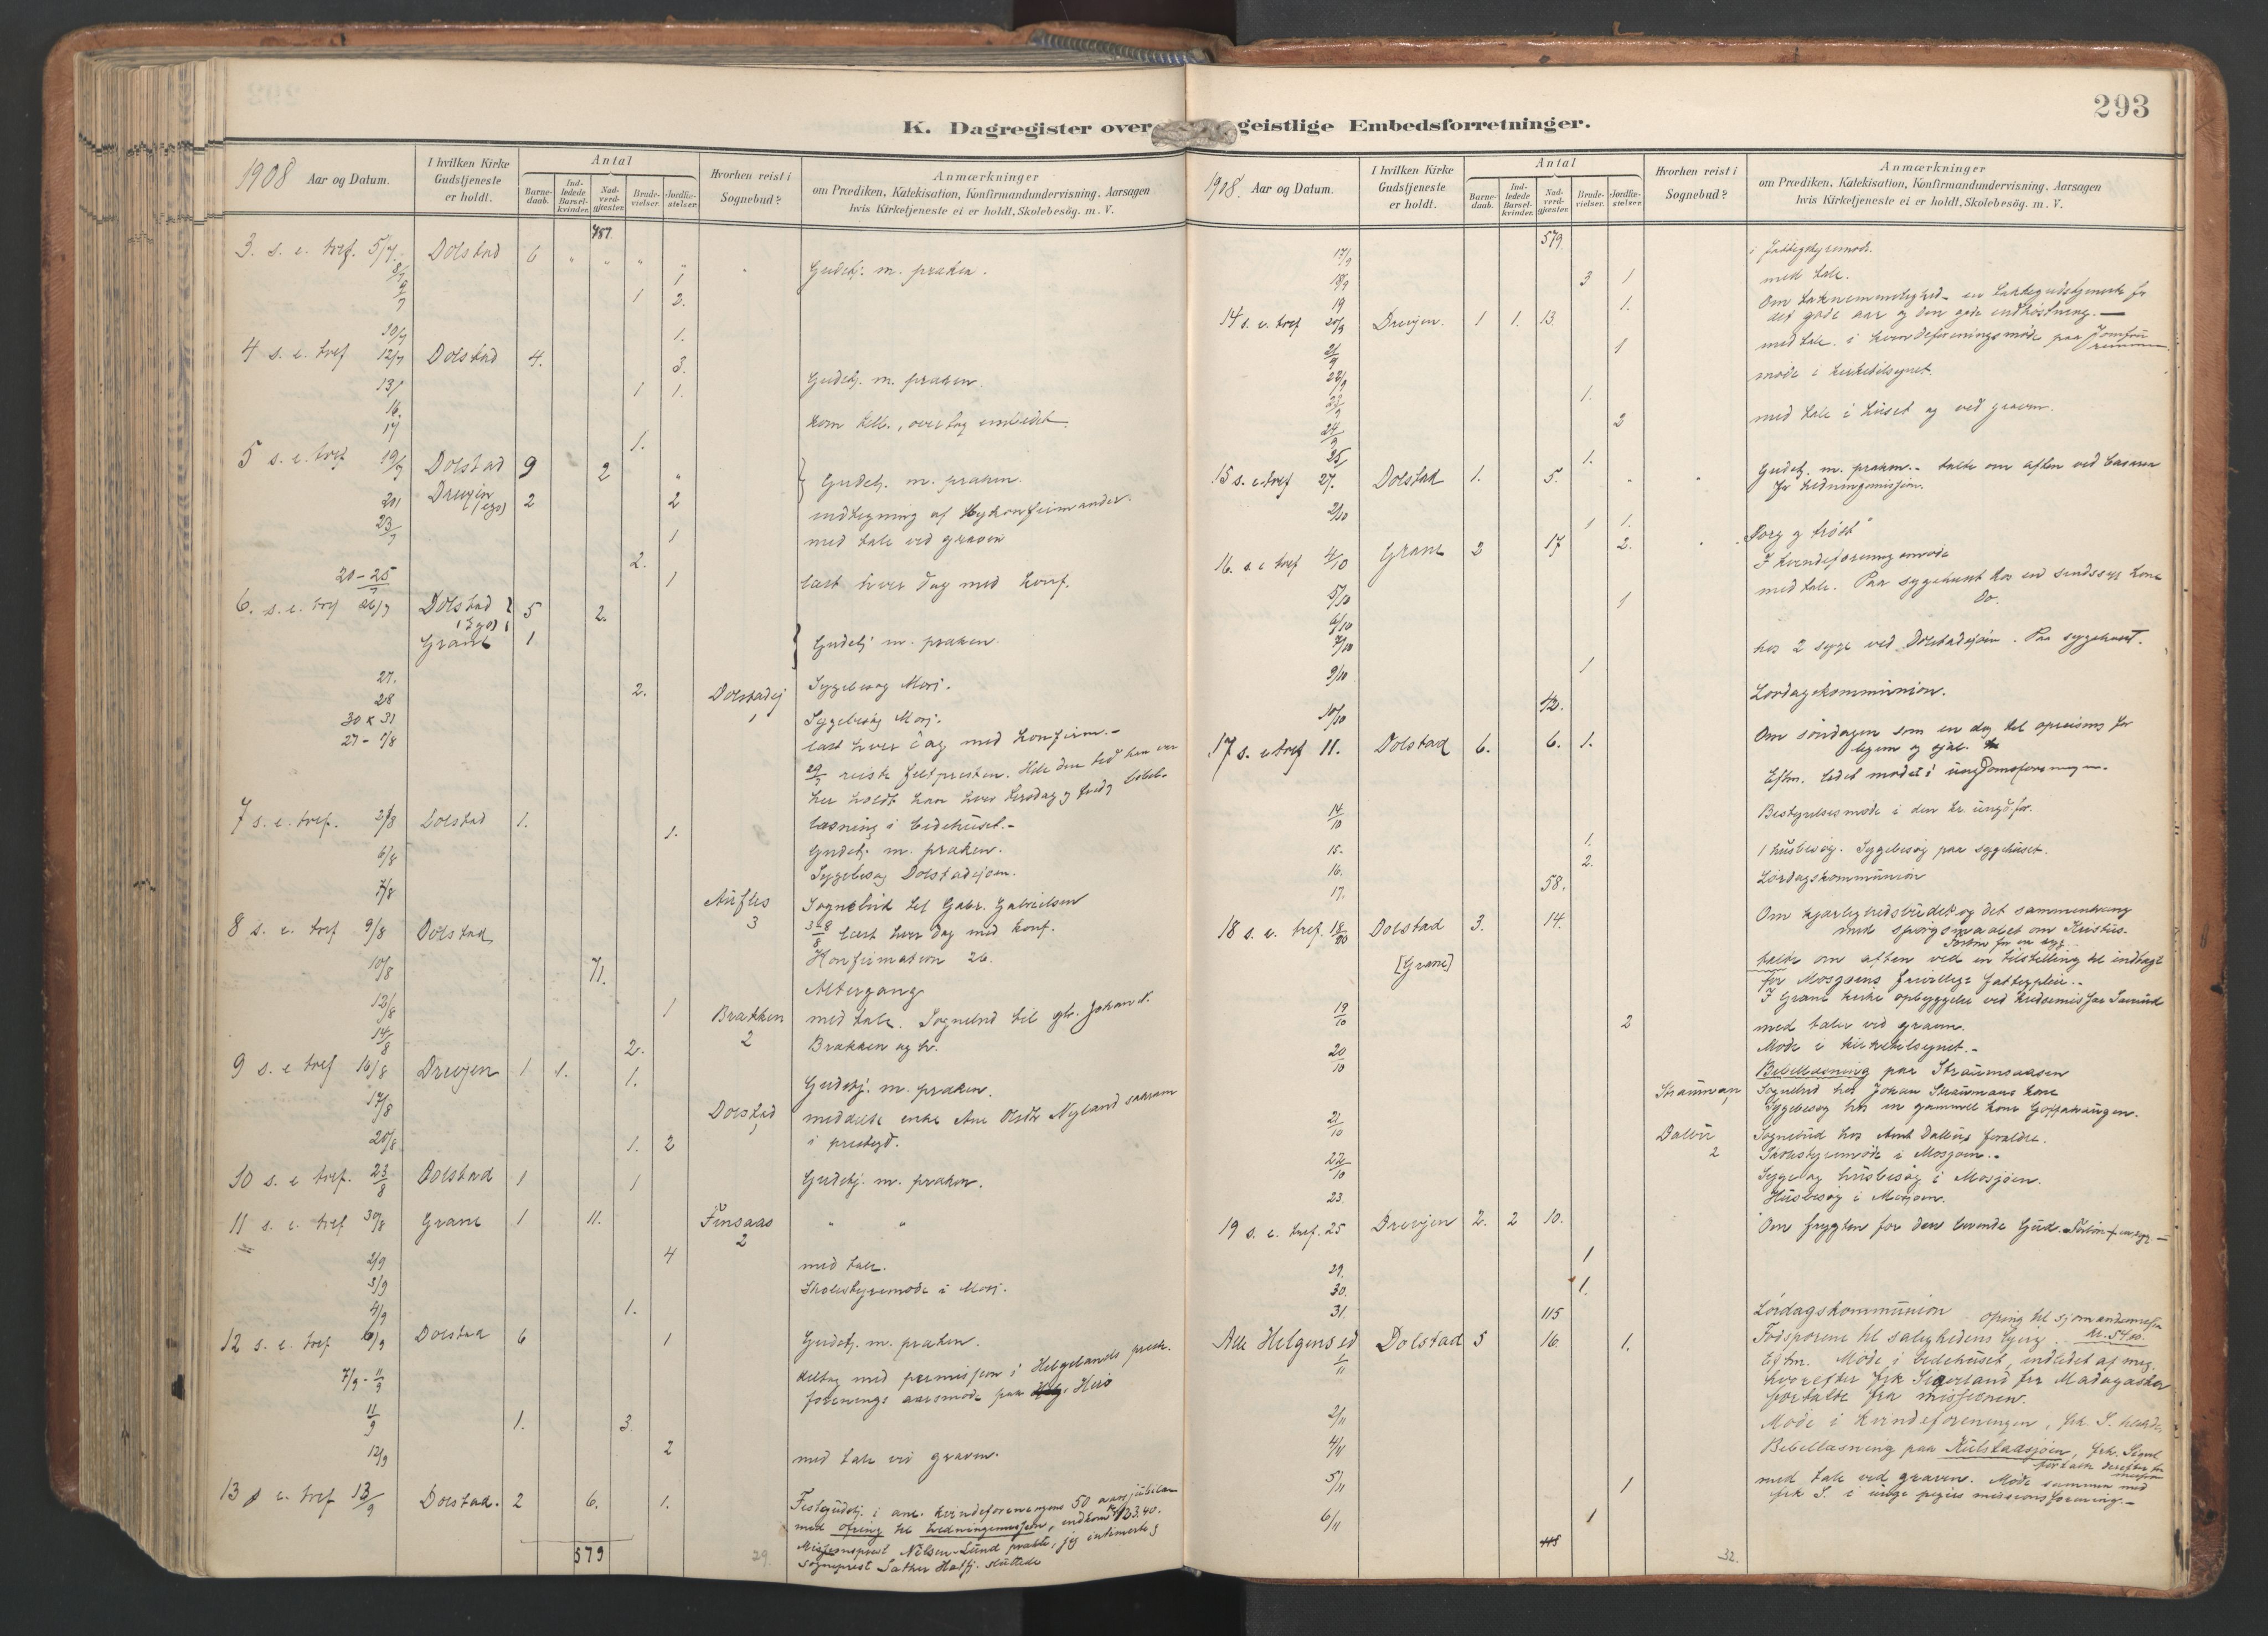 293
K. Dagregister over geistlige Embedsforretninger.
1908 Aar og Datum.
I hvilken Kirke Gudstjeneste er holdt.
Antal
Barnedaab.
Indledede Barselkvinder.
Nadverdgjester.
Brudevielser.
Jordfæstelser.
Hvorhen reist i Sognebud?
Anmærkninger
om Prædiken, Katekisation, Konfirmandundervisning, Aarsagen
hvis Kirketjeneste ei er holdt, Skolebesög. m. V.
3. s. e. tref. 5/7. Dolstad 6 " " " "
Gudstj. m. præken.
8/7 1
9/7 1 2.
10/7 1.
4 s. e. tref 12/7 Dolstad 4. 3.
Gudstj. m. præken.
13/ 1 1.
16.
17 1.
5 s. e. tref 19/7 Dolstad 9 2 "
Gudstj. m. præken.
20/ 2 2
23/7 1
med tale ved graven
2.
20-25/7 1
læst hver dag med konf.
6. s. e. tref 26/7 Dolstad 5 2.
Grane 1
Gudstj m. præken.
27. 2. Dolstadsj 1
Sygebesøg Mosj.
28
Sygebesøg Mosj.
30 & 31
27 - 1/8
læst hver dag med konfirm.-
læsning i bedehuset.-
7 s. e. tref. 2/8 Dolstad 1. 1.
Gudstj. m. præken.
6/8
Sygebesøg Dolstadsjøen.
7/8 3
Sognebud til Gabr. Gabrielsen
læst hver dag med konf.
8 s. e. tref 9/8 Dolstad
Konfirmation 26.
10/8 71.
Altergang
12/8 1 Brækken 2
med tale. Sognebud til Johan N.
Brækken og h.
14/8 2.
9 s. e tref 16/8 Drevjen 1 1. 1.
Gudstj. m. præken.
17/8 Dolstad 1
20/8 1. 2
10 s. e tref. 23/8 Dolstad 1 1
Gudstj. m. præken.
11 s. e. tref 30/8 Grane 1 11. Finsaas 2
" "
2/9 4
med tale.
3/9
Skolestyremøde i Mosj.
4/9 1.
12 s. e. tref 6/9 Dolstad 6 1
Gudstj. m. præken.
7/9 - 11/9
deltog med permission i Helgelands prest.
forenings aarsmøde paa Herø
11/9 1. 3.
12/9 2
med tale ved graven.
13 s e. tref 13/9 Dolstad. 2 6. 1.
Festgudstj. i anl. kvindeforeningens 50 aars jubilæum
med ofring til hedningemissjon, indkom 123.40.
Missjonsprest Nilsen-Lund præket, jeg intimerte og
sogneprest Sæther Hatfj. sluttede
579
29.
1908. Aar og Datum.
I hvilken Kirke Gudstjeneste er holdt.
Antal
Barnedaab.
Indledede Barselkvinder.
Nadverdgjester.
Brudevielser.
Jordfæstelser.
Hvorhen reist i Sognebud?
Anmærkninger
om Prædiken, Katekisation, Konfirmandundervisning, Aarsagen
hvis Kirketjeneste ei er holdt, Skolebesög. m. V.
579
17/9
i fattigstyremøde.
18/9 3 1
med tale.
19 1.
14 s. e. tref 20/9 Drevjen. 1 1. 13.
Om taknemmelighed - en takkegudstjeneste for
det gode aar og den gode indhøstning. -
21/9 1
med tale. i kvindeforeningsmøde paa
22/9
møde i kirketilsynet.
23/9 1.
24/9 2
med tale i huset og ved graven.
25/ 1.
15 s. e. tref 27. Dolstad 1. 5. " "
Gudstj. m. præken.- talte om aften ved basaren
for hedningemissjon.
2/10 1 1.
16. s. e tref 4/10 Grane 2 17 2.
Sorg og trøst"
I kvindeforeningsmøde
5/10 1
med tale. Paa sygehuset hos en sindssyg kone
6/10
Do.
7/10
hos 2 syge ved Dolstadsjøen. Paa sygehuset.
9/10 1
10/10 42.
Lørdagskommunion.
17 s. e tref 11. Dolstad 6. 6. 1.
Om søndagen som en dag til opreisning for
legem og sjæl.
Eftm. ledet mødet i ungdomsforeningen.
14/10
Bestyrelsesmøde i den kr. ungd.for.
15. 1.
1 husbesøg. Sygebesøg paa sygehuset.
16. 2.
17. 58.
Lørdagskommunion
18 s. e. tref. 18/10 Dolstad 3. 14.
Om kjærlighedsbudet og det sammenhæng
med spørgsmaalet om Kristus.
Forbøn for en syg.
[Grane]
talte om aften ved en tilstelling til indtægt
for Mosjøens frivillige fattigpleie.-
I Grane kirke opbyggelse ved
19/10 2
med taler ved graven.
20/10
Møde i kirketilsynet.-
Bibellæsning paa Straumsaasen
Strauman 1
Sognebud hos Johan Straumans kone
21/10
Sygebesøg hos en gammel kone
2
Sognebud hos forældre.
22/10
Skolestyremøde i Mosjøen.-
Syge og husbesøg i Mosjøen.
23.
Husbesøg i Mosjøen.
19 s. e. tref. 25 Drevjen 2. 2 10.
Om frygten for den levende Gud. Forbøn f. en syg. -
29. 1
30. 1.
31. 115
Lørdagskommunion
Alle Helgensd 1/11 Dolstad 5 16. 1.
Ofring til sjømandsmissjon kr. 54.00.
Fodsporene til salighedens bjerg.
Eftm. Møde i bedehuset, indledet af mig,
hvorefter frk. fra Madagaskar
fortalte fra missionen.
2/11
Møde i kvindeforeningen, frk. S.
4/11
Bibellæsning paa Kulstadsjøen, frk.
fortalte derefter fra missjon
5/11 1
med tale ved graven. Møde sammen med
frk S. i unge pigers missionsforening.-
6/11 1
32.